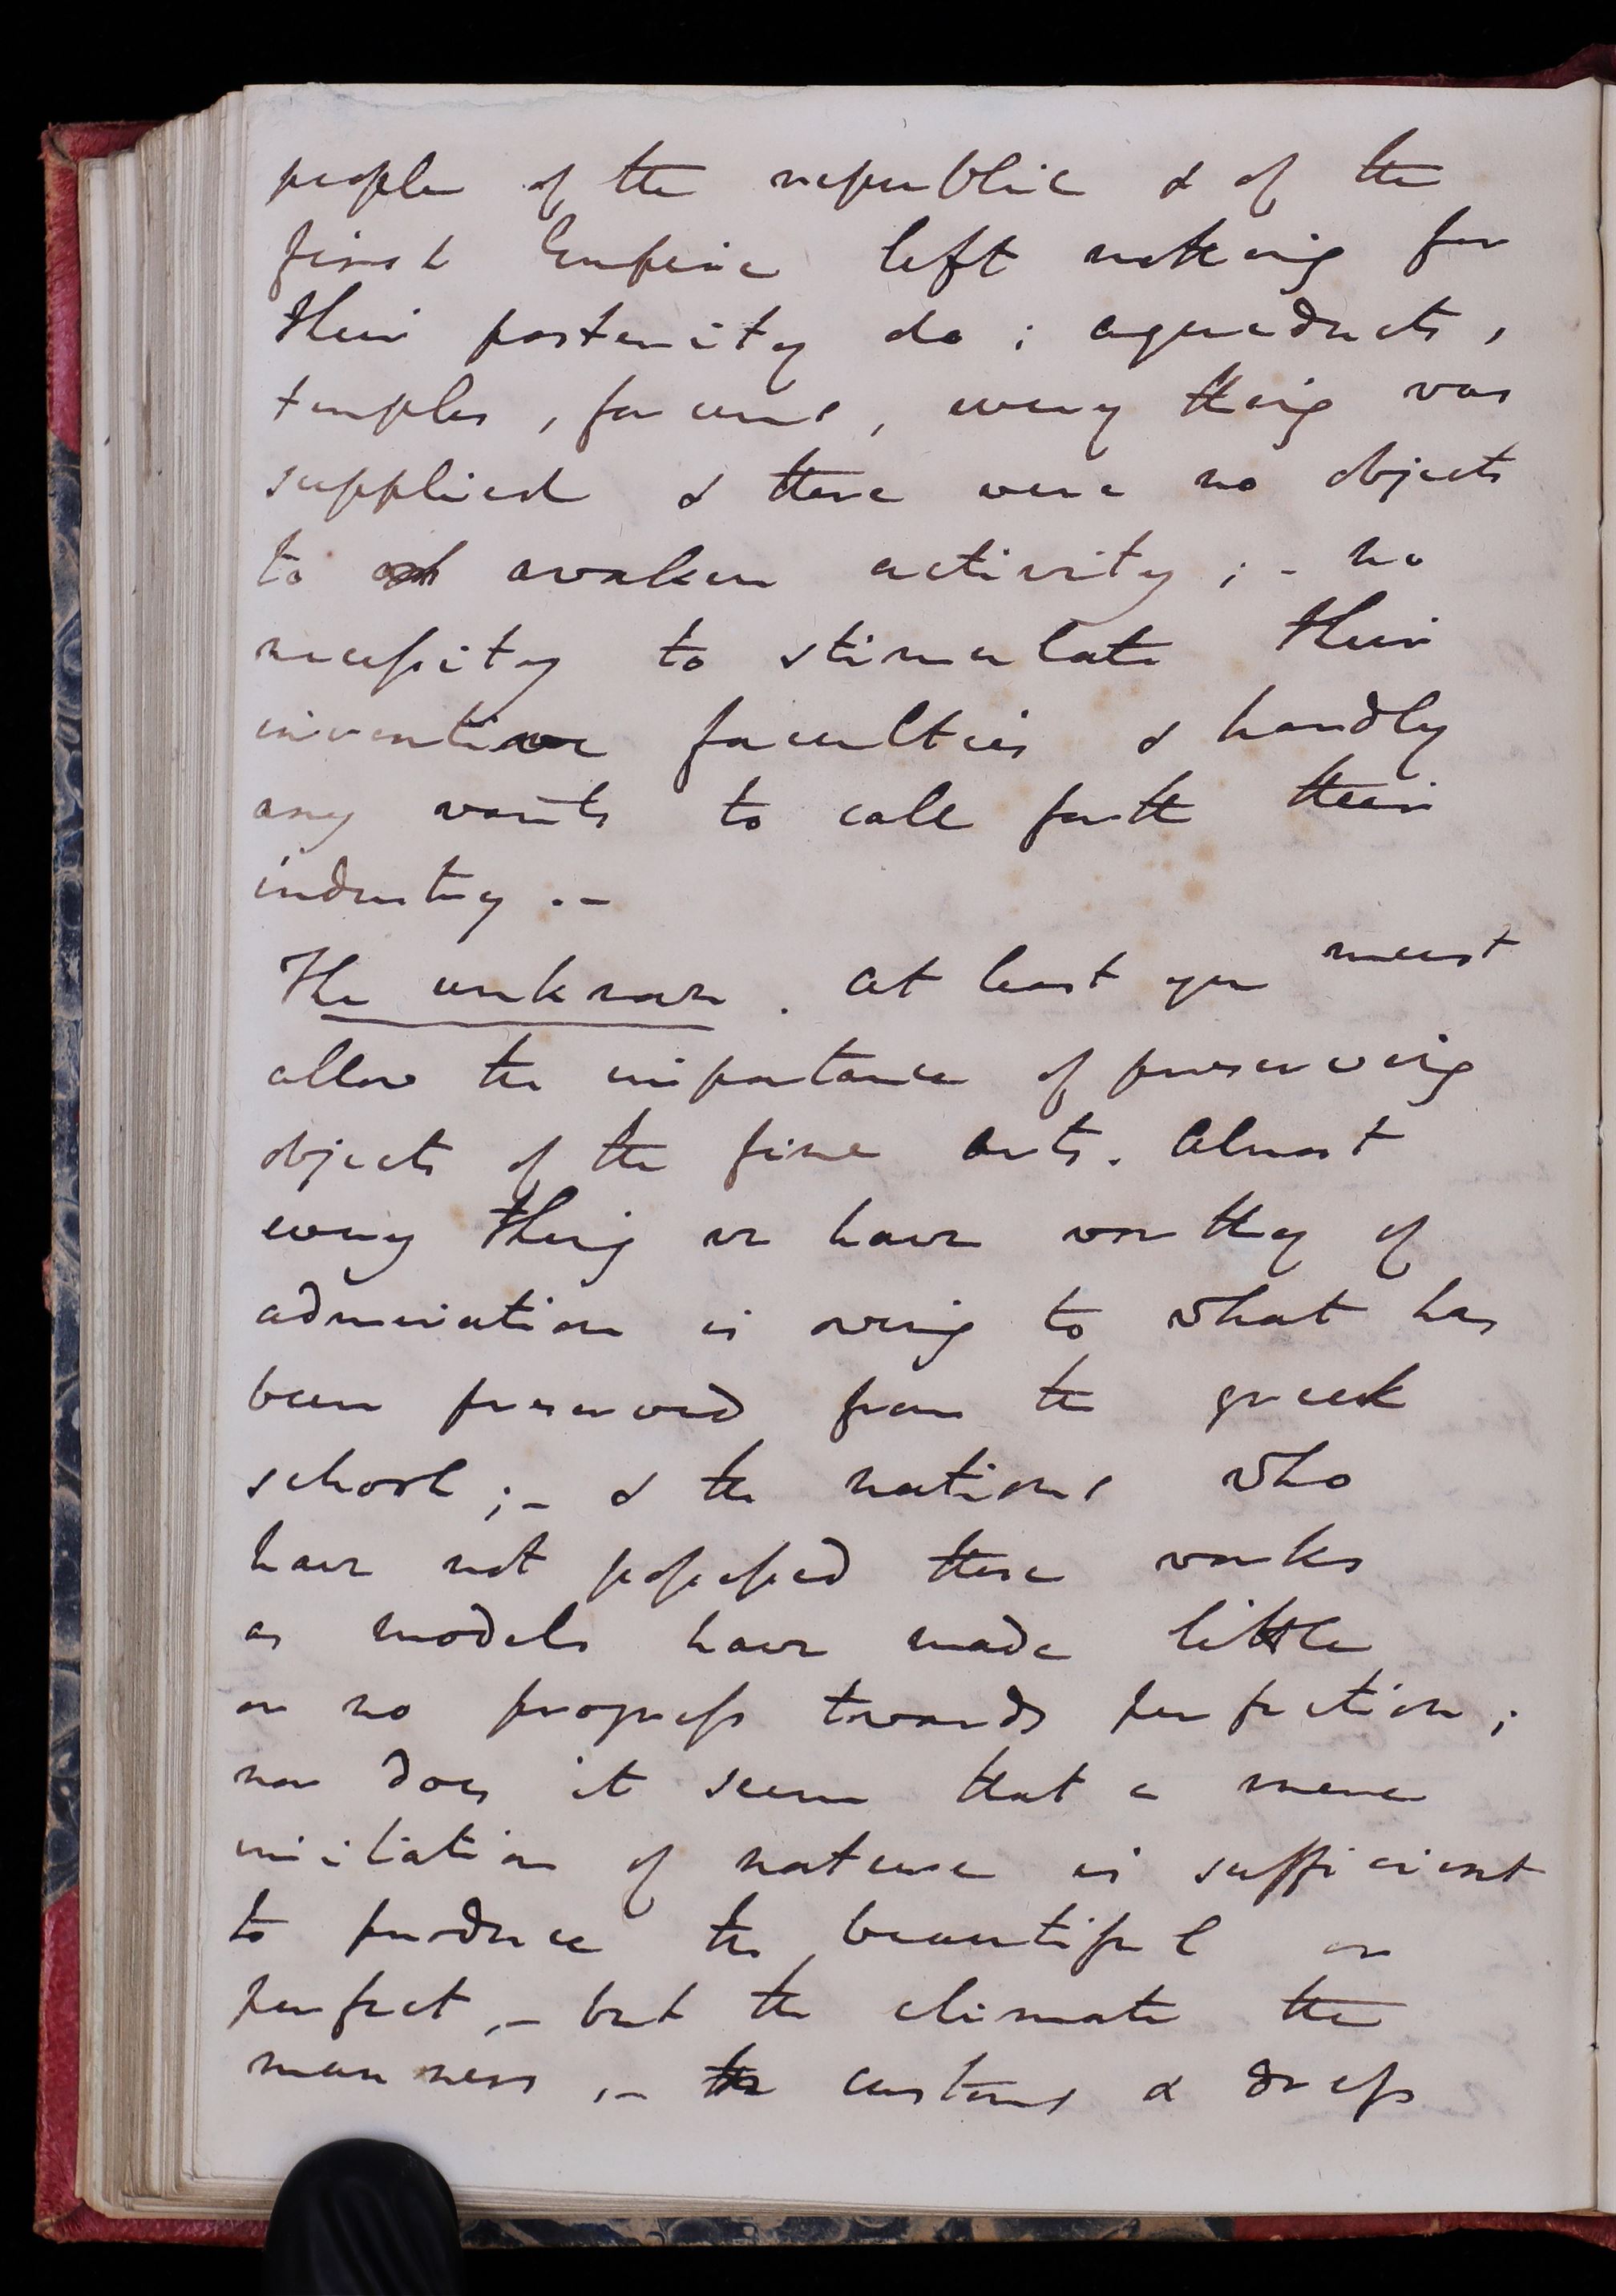 people of the republic & of the
first Empire left nothing for
their posterity do; aqueducts,
temples, forums, every thing was
supplied & there were no objects
to awaken activity; - no
necessity to stimulate their
inventive faculties & hardly
any wants to call forth their
industry. -
The unknown. At least you must
allow the importance of preserving
objects of the fine arts. Almost
every thing we have worthy of
admiration is owing to what has
been preserved from the greek
school; - & the nations who
have not possessed these works
as models have made little
or no progress towards perfection;
nor does it seem that a mere
imitation of nature is sufficient
to produce the beautiful or
perfect, - but the climate the
manners, - the customs & dress